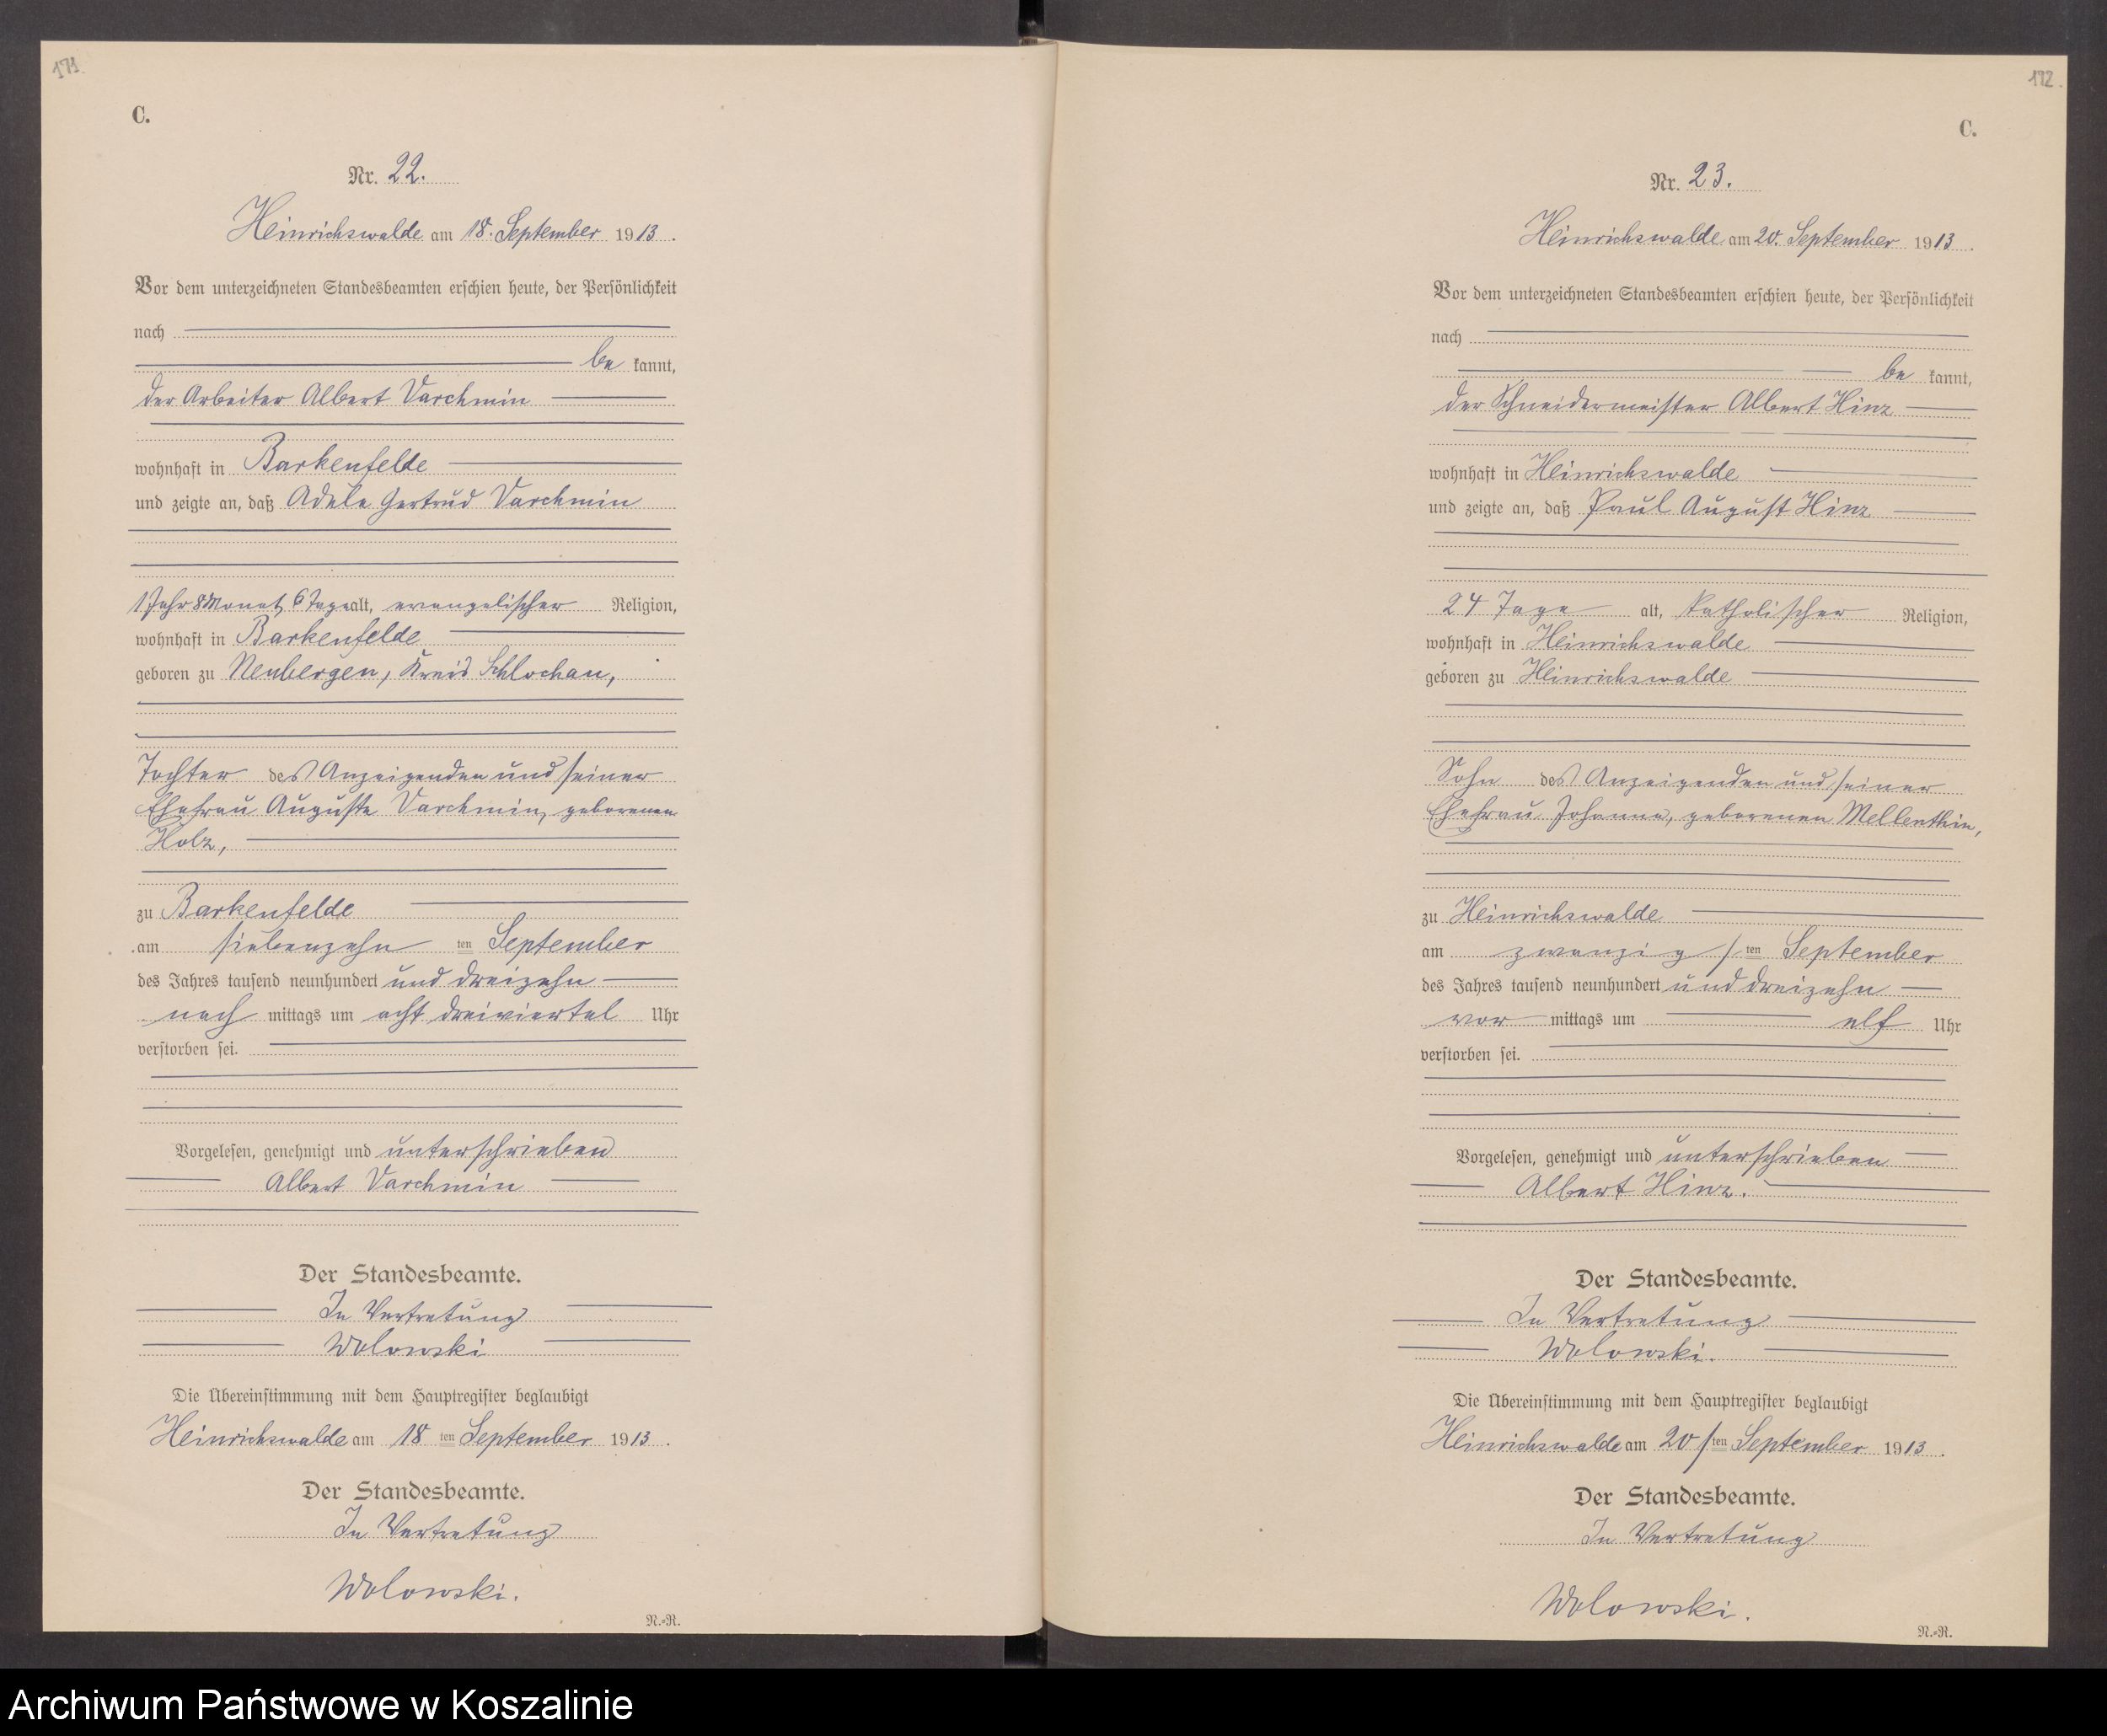 171.
C.
Nr. 22.
Heinrichswalde am 18. September 1913.
Vor dem unterzeichneten Standesbeamten erschien heute, der Persönlichkeit
nach
be kannt,
der Arbeiter Albert Varchmin
wohnhaft in Barkenfelde
und zeigte an, daß Adele Gertrud Varchmin
1 Jahr 8 Monat 6 Tage alt, evangelischer Religion,
wohnhaft in Barkenfelde
geboren zu Neubergen, Kreis Schlochau,
Tochter des Anzeigenden und seiner
Ehefrau Auguste Varchmin, geborenen
Holz,
zu Barkenfelde
am siebenzehn ten September
des Jahres tausend neunhundert und dreizehn
nach mittags um acht dreiviertel Uhr
verstorben sei.
Vorgelesen, genehmigt und unterschrieben
Albert Varchmin
Der Standesbeamte.
In Vertretung
Wolowski
Die Übereinstimmung mit dem Hauptregister beglaubigt
Heinrichswalde am 18 ten September 1913.
Der Standesbeamte.
In Vertretung
Wolowski.
N.=R.
172.
C.
Nr. 23.
Heinrichswalde am 20. September 1913.
Vor dem unterzeichneten Standesbeamten erschien heute, der Persönlichkeit
nach
be kannt,
der Schneidermeister Albert Hinz
wohnhaft in Heinrichswalde
und zeigte an, daß Paul August Hinz
24 Tage alt, katholischer Religion,
wohnhaft in Heinrichswalde
geboren zu Heinrichswalde
Sohn des Anzeigenden und seiner
Ehefrau Johanna, geborenen Mellenthin,
zu Heinrichswalde
am zwanzig sten September
des Jahres tausend neunhundert und dreizehn
vor mittags um elf Uhr
verstorben sei.
Vorgelesen, genehmigt und unterschrieben
Albert Hinz.
Der Standesbeamte.
In Vertretung
Wolowski.
Die Übereinstimmung mit dem Hauptregister beglaubigt
Heinrichswalde am 20 sten September 1913.
Der Standesbeamte.
In Vertretung
Wolowski.
N.=R.
Archiwum Państwowe w Koszalinie